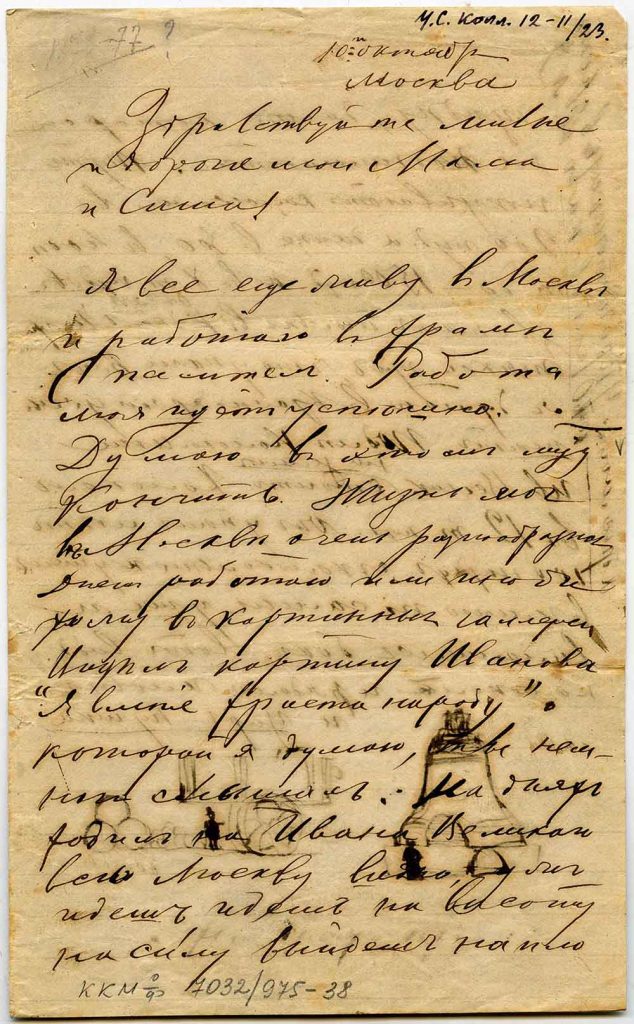 77 ?
У.С. Копл. 12-11/23.
10й октябр
Москва
Здравствуйте милые
и дорогие мои Мама
и Саша!
Я все еще живу в Москвы
и работаю в храмы
Спасителя. Работа
моя идёт успешно.
Думаю в этом
кончить. Жизнь моя
въ Москвы очень разнообразна
днем работаю или иногда
хожу в картинные галереи
Видилъ картину Иванова
"Явление Христа народу".
которой я думаю, ты нем-
ного слышалъ. На дняхъ
ходилъ на Ивана Великаго
всю Москву видно,
идешъ идешъ на высоту
на силу выйдешъ на пло
ККМ оф 7032/975-38